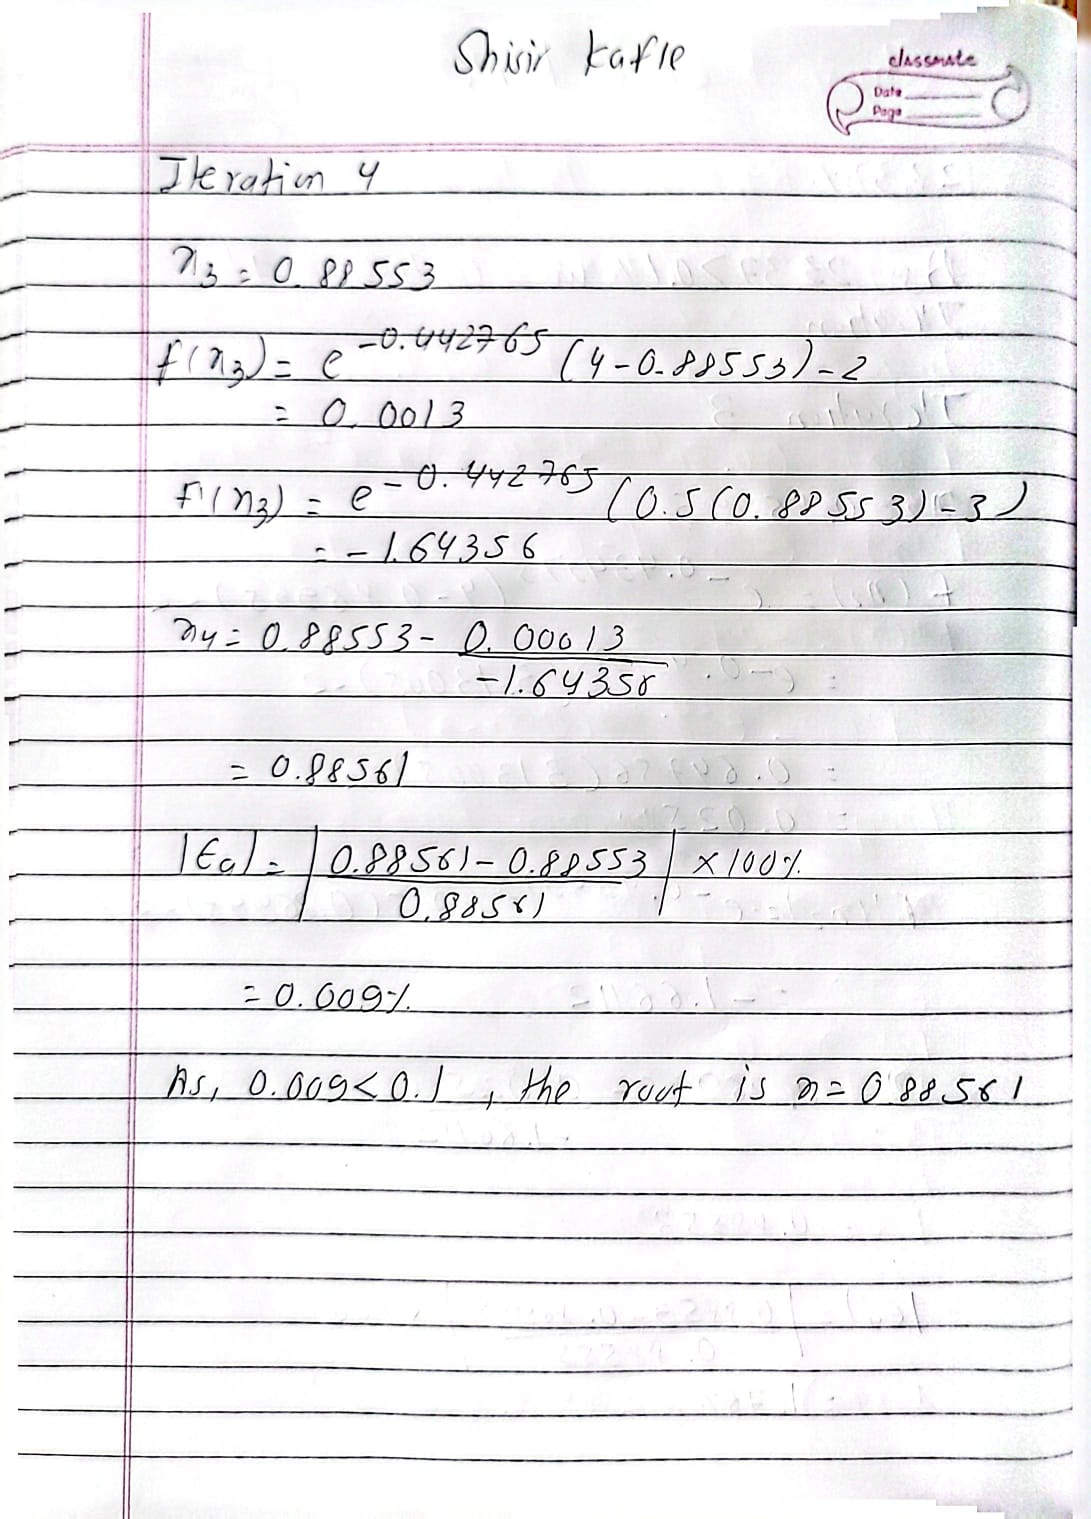 Shisir Kafle
classmate
Date
Page
Iteration 4
x₃ = 0.88553
f(x₃) = e^-0.442765 (4-0.88553)-2
= 0.0013
f'(x₃) = e^-0.442765 (0.5(0.88553)-3)
= -1.64356
x₄ = 0.88553 - 0.00013
-1.64356
= 0.88561
|Ea| = | 0.88561-0.88553 | × 100%
0.88561
= 0.009%
As, 0.009<0.1, the root is x = 0.88561